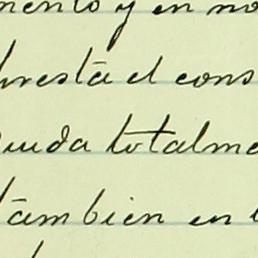 mento y en no
presta el cons
euda totalme
también en l